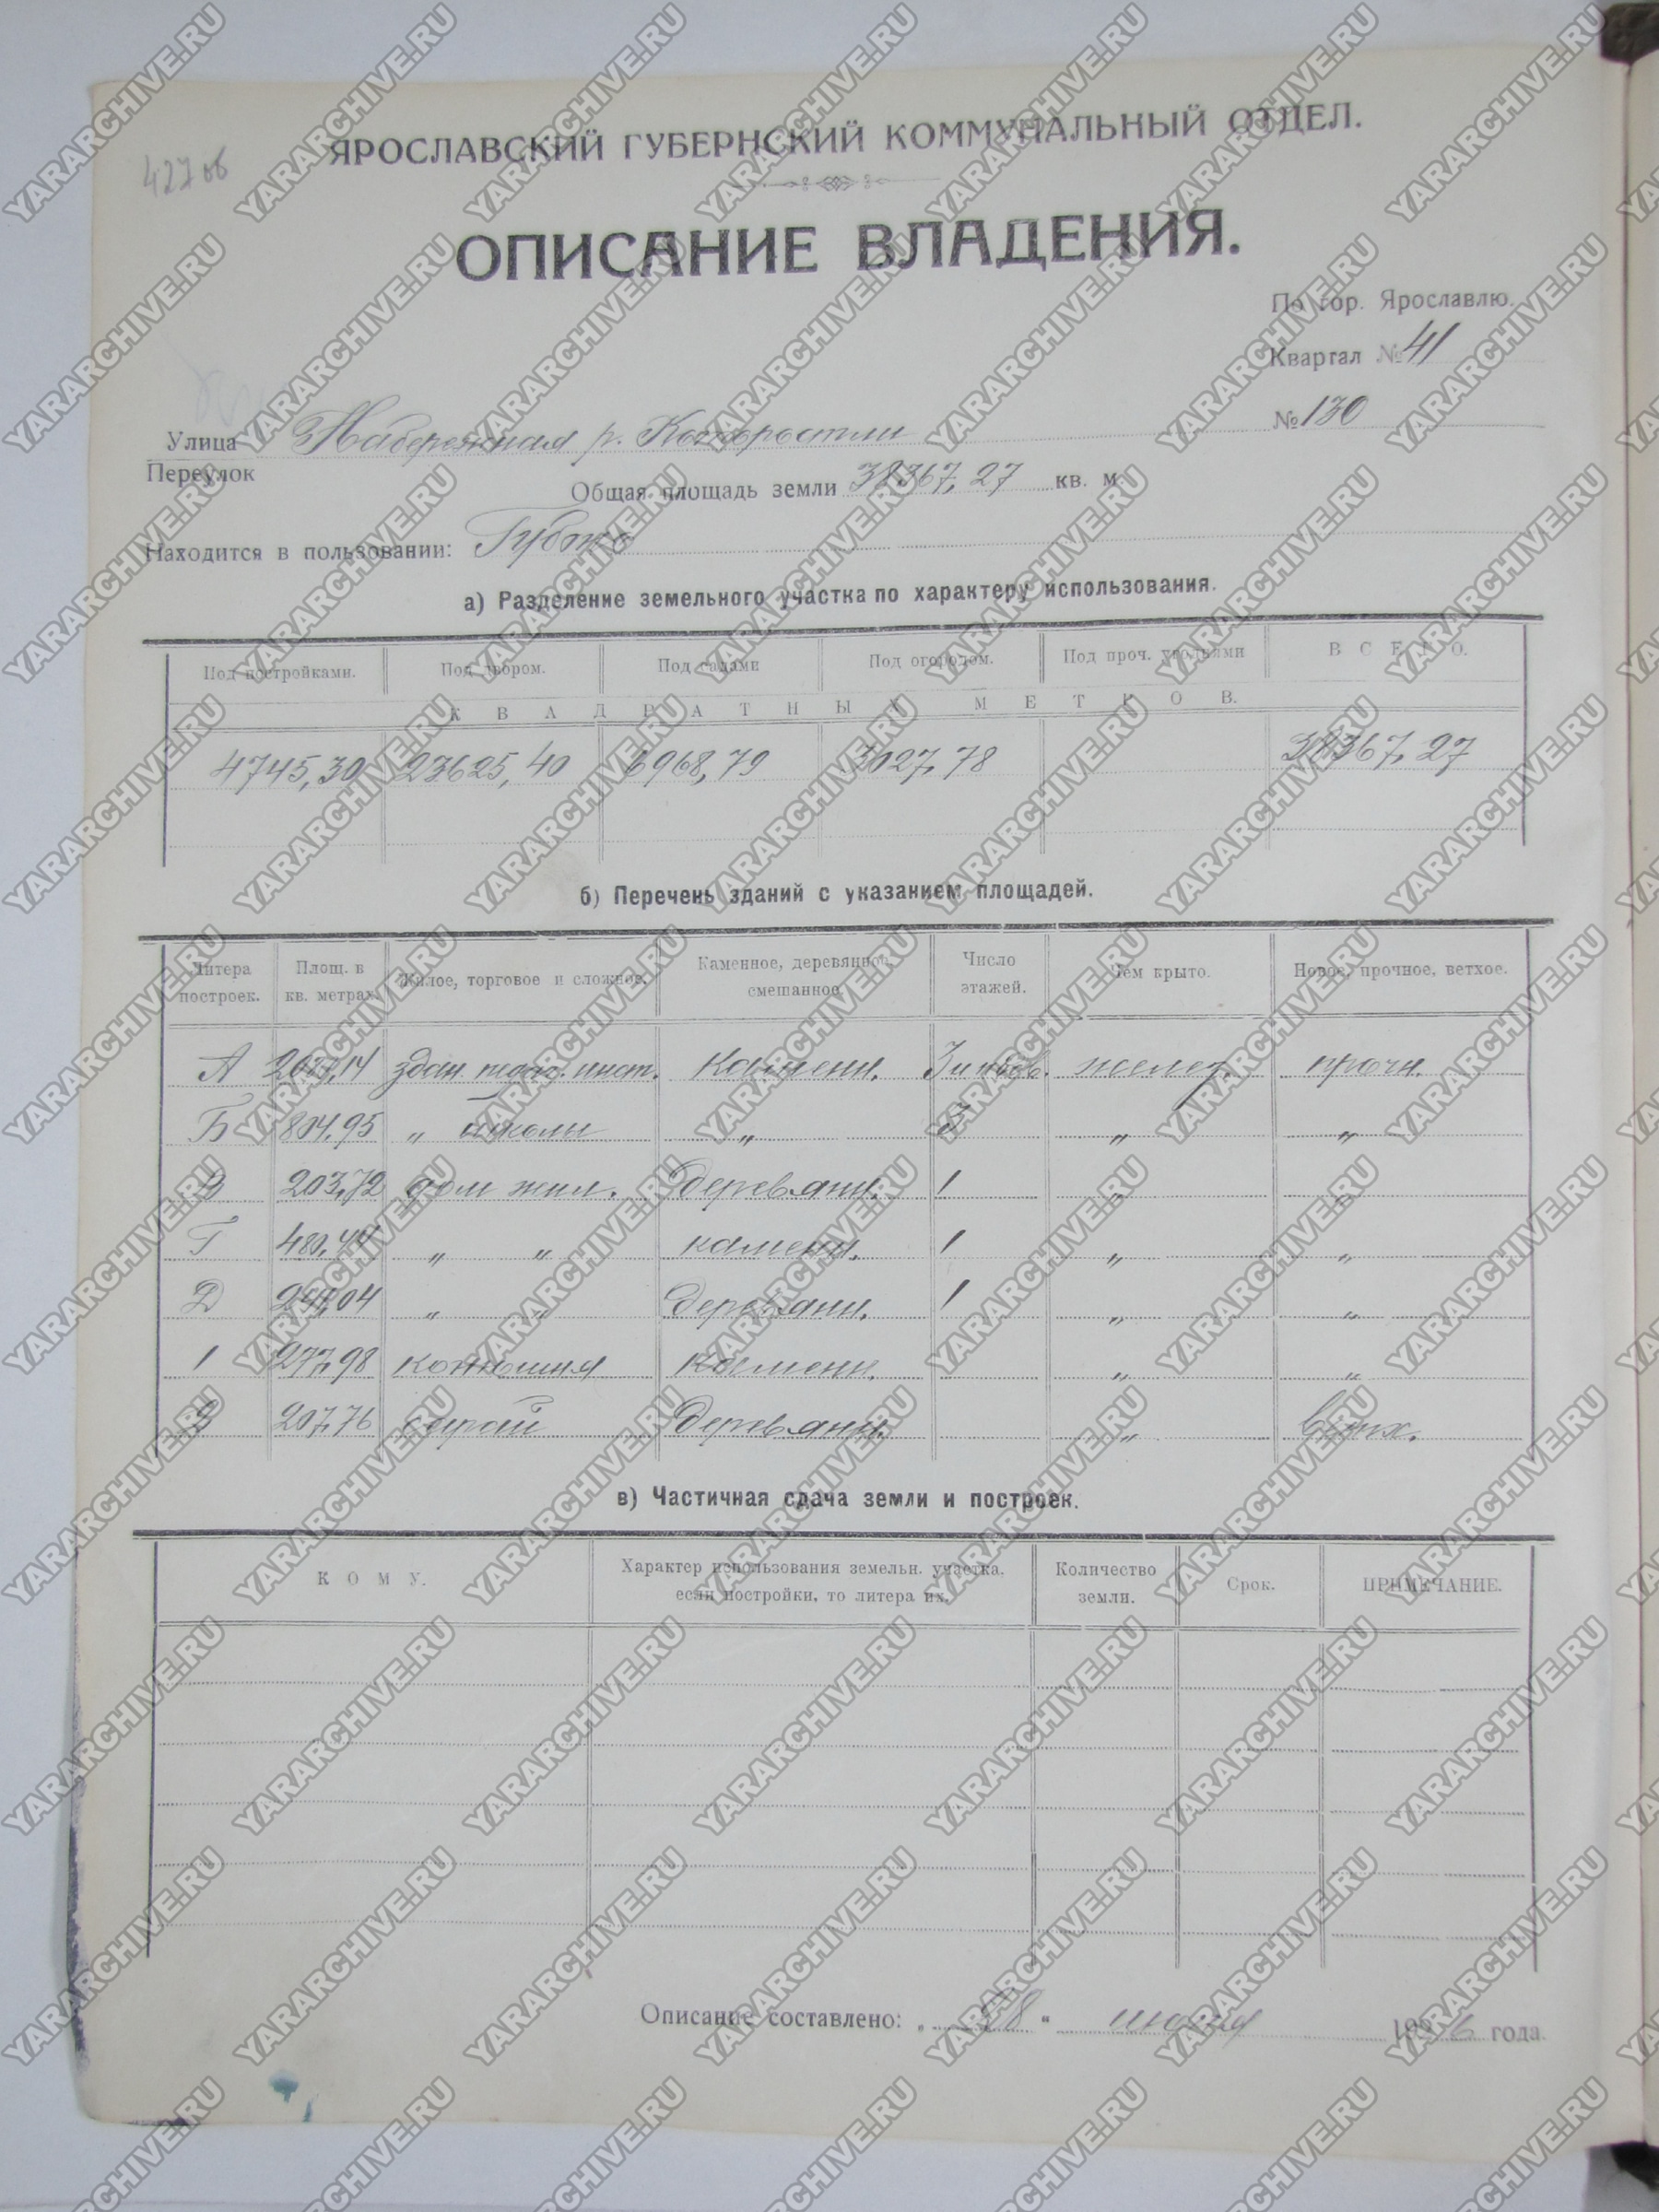 427 об
ЯРОСЛАВСКИЙ ГУБЕРНСКИЙ КОММУНАЛЬНЫЙ ОТДЕЛ.
ОПИСАНИЕ ВЛАДЕНИЯ.
По гор. Ярославлю.
Квартал № 41
Улица Набережная р. Которостли № 130
Переулок
Общая площадь земли 38367,27 кв. м.
Находится в пользовании: Губоно
а) Разделение земельного участка по характеру использования.
Под постройками. Под двором. Под садами Под огородом. Под проч. угодьями ВСЕГО.
КВАДРАТНЫХ МЕТРОВ.
4745,30 23625,40 6968,79 3027,78 38367,27
б) Перечень зданий с указанием площадей.
Литера построек. Площ. в кв. метрах Жилое, торговое и сложное. Каменное, деревянное, смешанное Число этажей. Чем крыто. Новое, прочное, ветхое.
А здан. инст. каменн. желез. прочн.
Б 804,95 „ школы „ 3 „ „
В 203,72 дом жил. деревянн. 1 „ „
Г 480,44 „ „ каменн. 1 „ „
Д „ „ деревянн. 1 „ „
1 277,98 конюшня каменн. „ „
207,76 сарай деревянн. „ ветх.
в) Частичная сдача земли и построек.
КОМУ. Характер использования земельн. участка, если постройки, то литера их. Количество земли. Срок. ПРИМЕЧАНИЕ.
Описание составлено: „ 28 “ 1926 года.
YARARCHIVE.RU